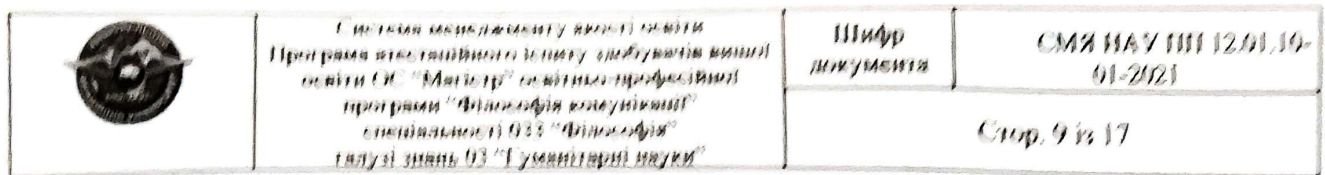 Система менеджменту якості освіти
Програма атестаційного іспиту здобувачів вищої
освіти ОС "Магістр" освітньо-професійної
програми "Філософія комунікації"
спеціальності 033 "Філософія"
галузі знань 03 "Гуманітарні науки"
Шифр
документа
СМЯ НАУ ПП 12.01.10-
01-2021
Стор. 9 із 17